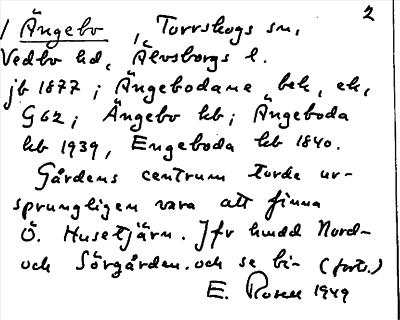 2
/ Ängebo, Torrskogs sn,
Vedbo hd, Älvsborgs l.
jb 1877; Ängebodane bek, ek,
G62; Ängebo kb; Ängeboda
kb 1939, Engeboda kb 1840.
Gårdens centrum torde ur-
sprungligen vara att finna
Ö. Husetjärn. Jfr hmdd Nord-
och Sörgården. och se bi- (forts.)
E. Rosell 1949